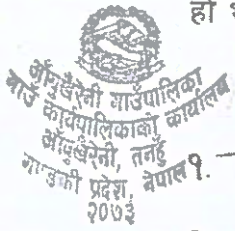 हो
आँबुखैरेनी गाउँपालिका
गाउँ कार्यपालिकाको कार्यालय
आँबुखैरेनी, तनहुँ
गण्डकी प्रदेश, नेपाल
२०७३
१.